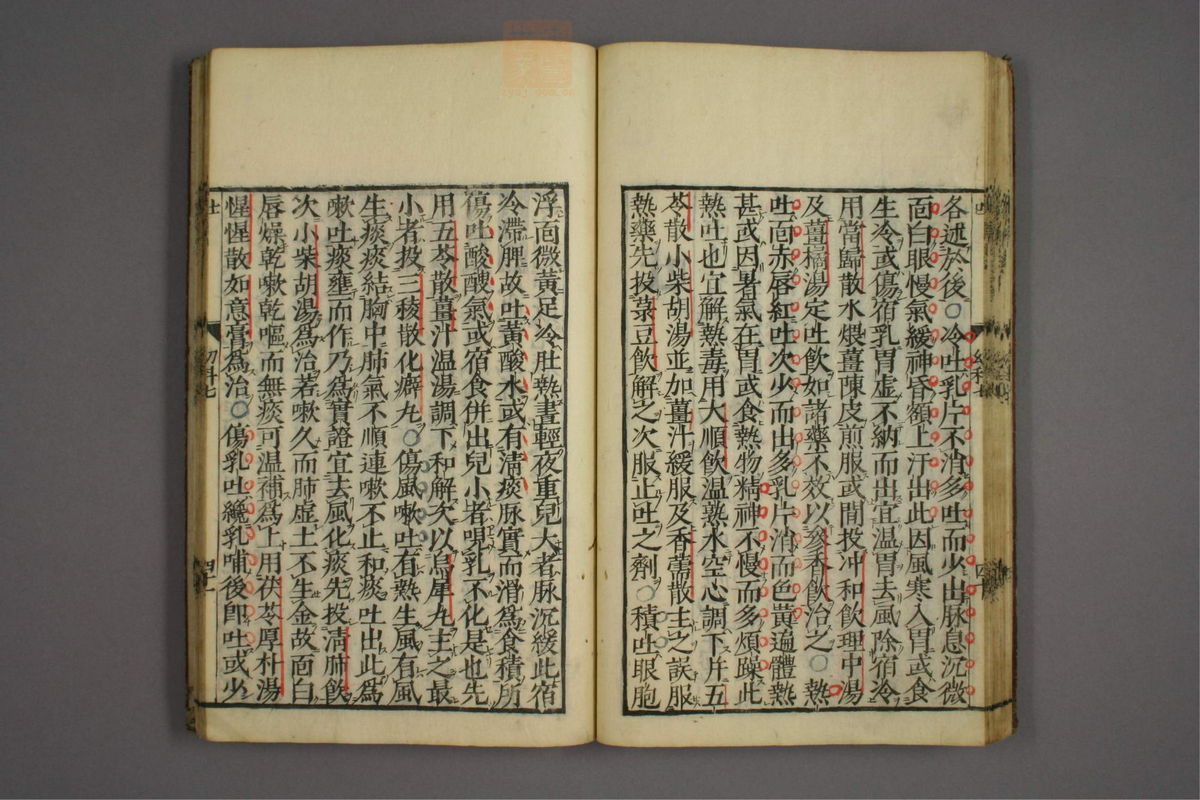 各述於後○冷吐乳片不消多吐而少出脉息沉微
面白眼慢氣緩神昏額上汗出此因風寒入胃或食
生冷或傷宿乳胃虚不納而出宜温胃去風除宿冷
用當歸散水煨薑陳皮煎服或間投冲和飲理中湯
及薑橘湯定吐飲如諸藥不效以參香飲治之○熱
吐面赤唇紅吐次少而出多乳片消而色黄遍體熱
甚或因暑氣在胃或食熱物精神不慢而多煩躁此
熱吐也宜解熱毒用大順飲温熟水空心調下并五
苓散小柴胡湯並加薑汁緩服及香薷散主之誤服
熱藥先投菉豆飲解之次服止吐之劑○積吐眼胞
浮面微黄足冷肚熱晝輕夜重兒大者脉沉緩此宿
冷滯脾故吐黄酸水或有清痰脉實而滑爲食積所
傷吐酸餿氣或宿食併出兒小者哯乳不化是也先
用五苓散薑汁温湯調下和解久以烏犀丸主之最
小者投三稜散化癖丸○傷風嗽吐有熱生風有風
生痰痰結胸中肺氣不順連嗽不止和痰吐出此爲
嗽吐痰壅而作乃爲實證宜去風化痰先投清肺飲
次小柴胡湯爲治若嗽久而肺虚土不生金故面白
唇燥乾嗽乾嘔而無痰可温補爲上用茯苓厚朴湯
惺惺散如意膏爲治○傷乳吐纔乳哺後即吐或少